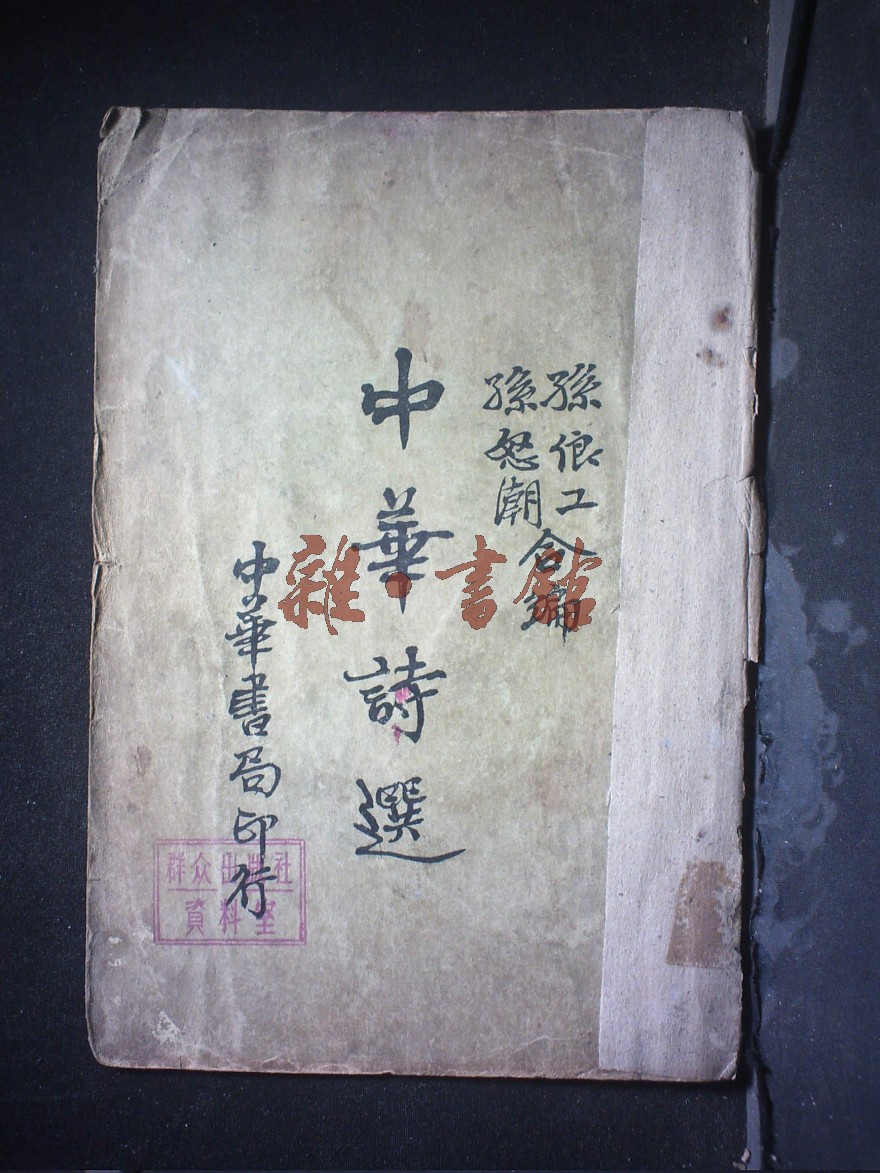 孫俍工
孫怒潮
合編
中華詩選
中華書局印行
群众出版社
資料室
雜·書館